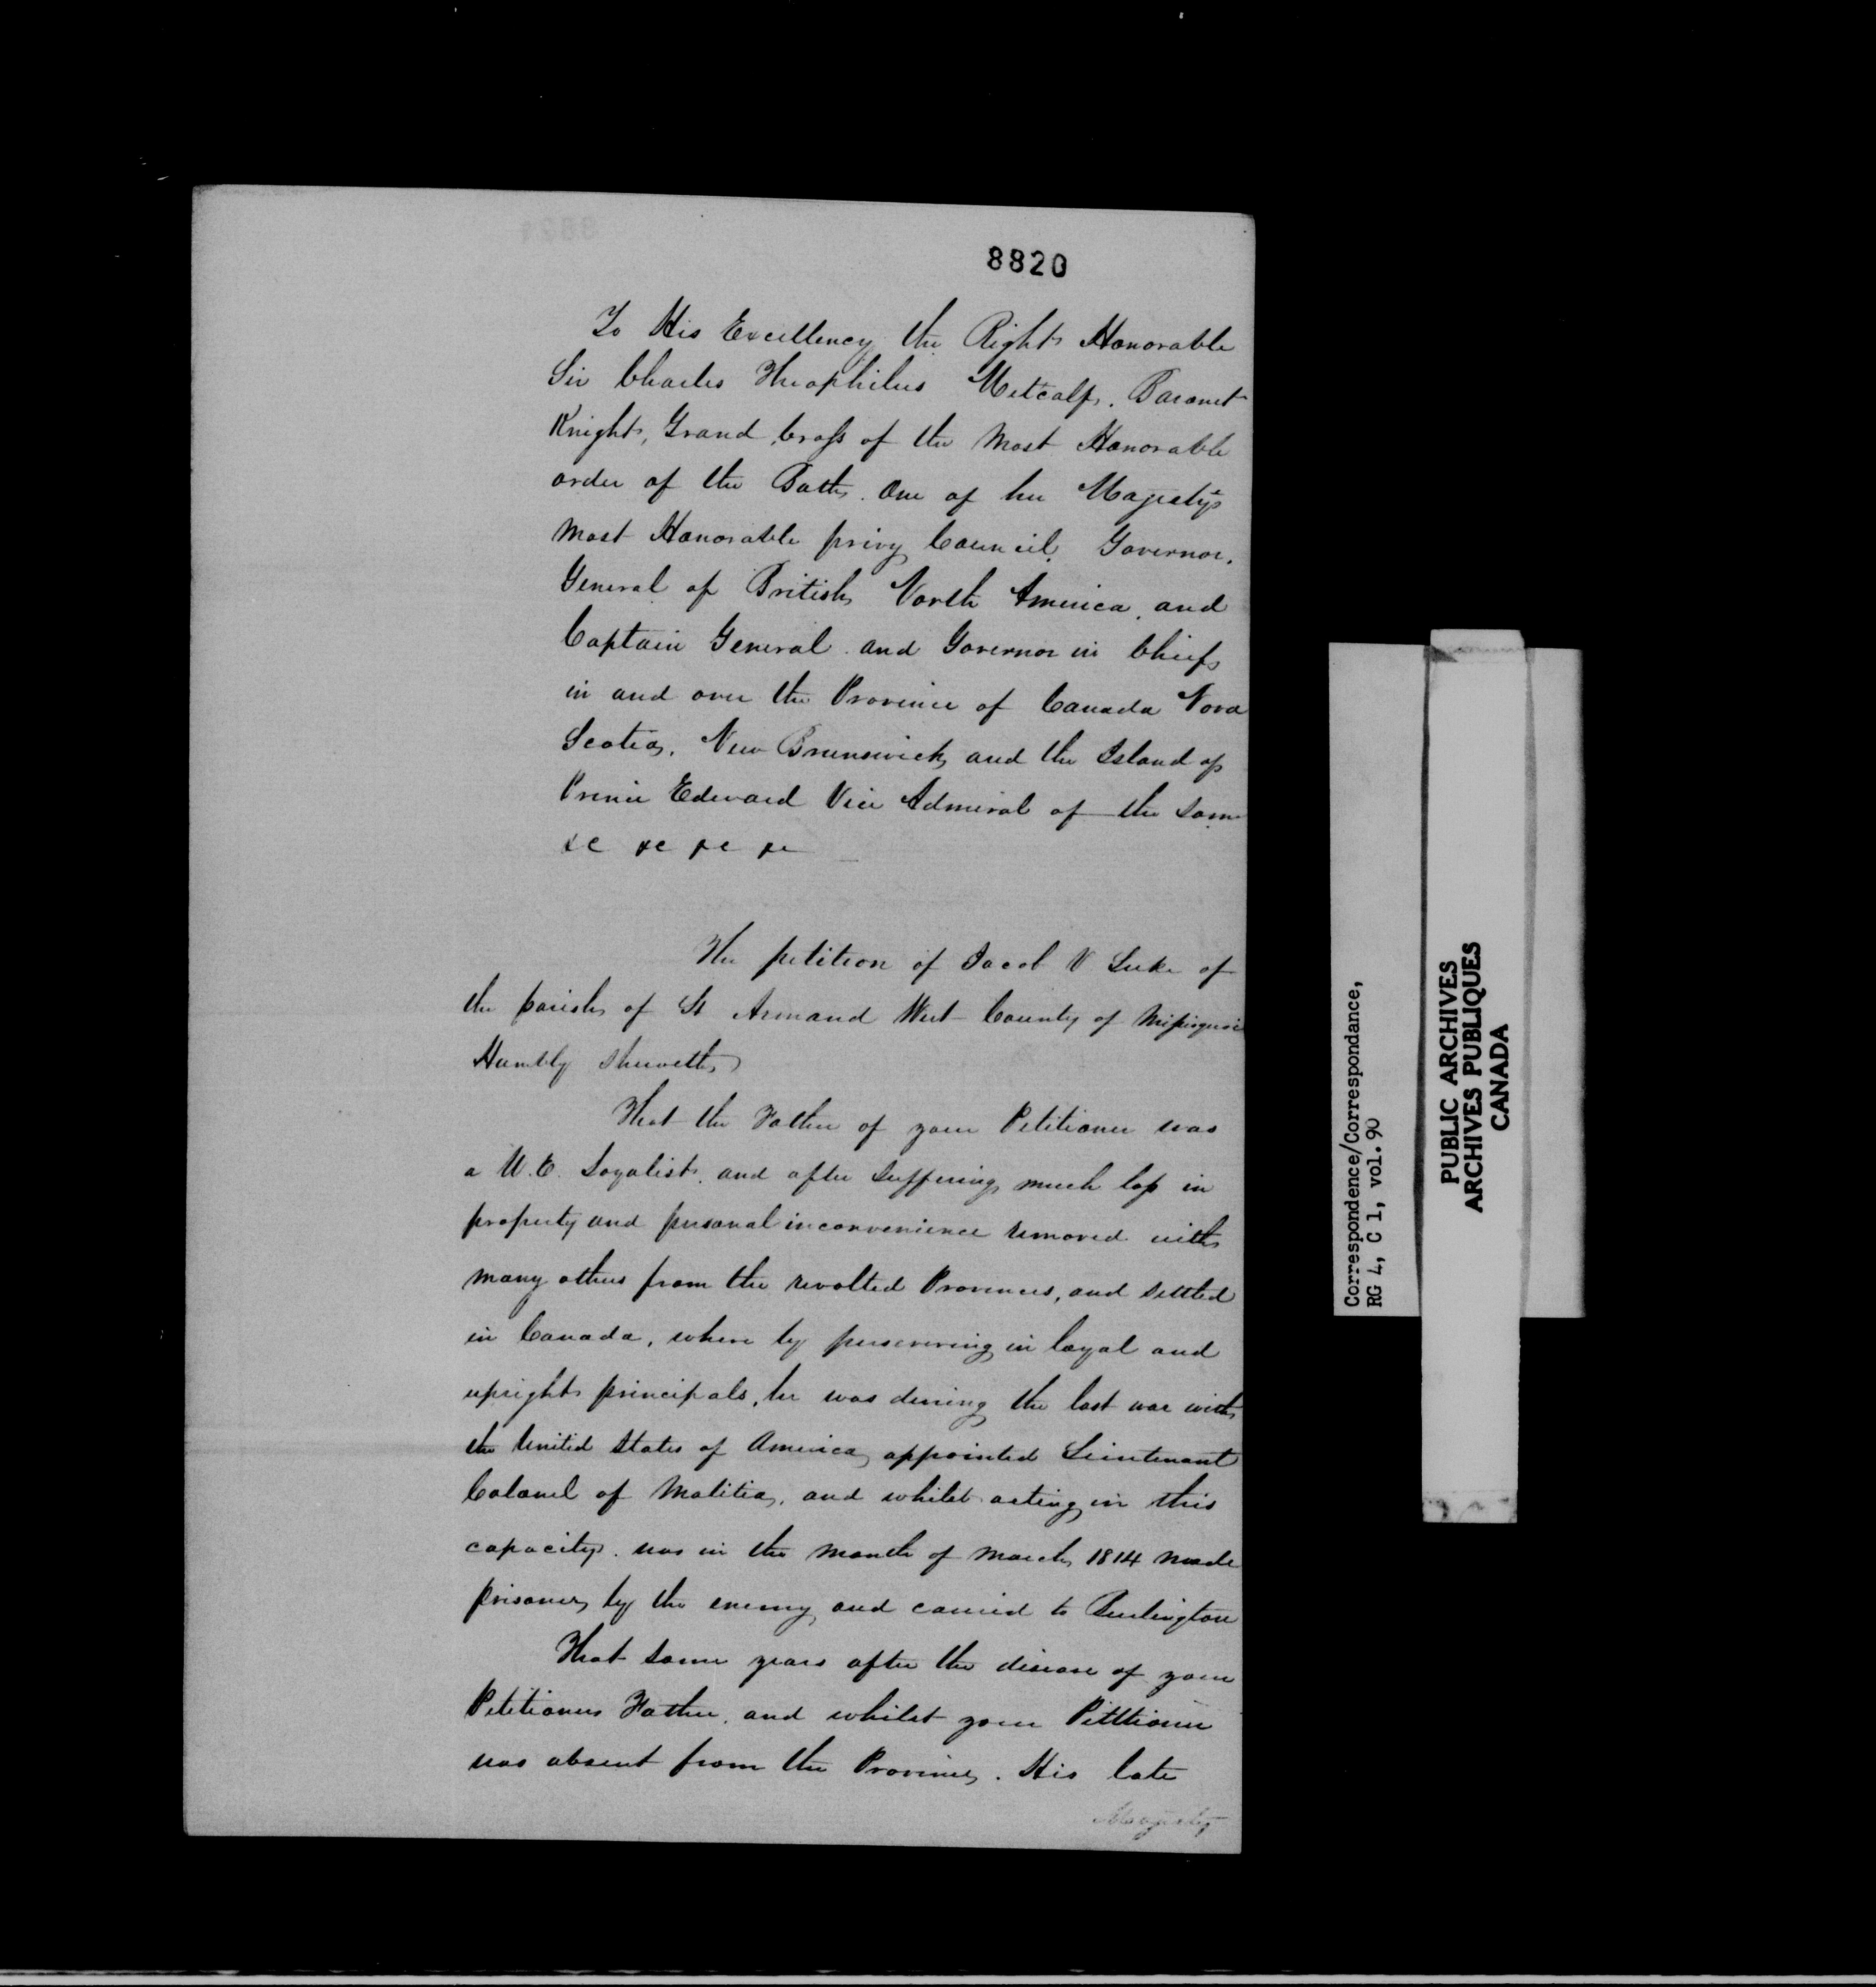 8820
To His Excellency the Right Honorable
Sir Charles Theophilus Metcalf. Baronet
Knight, Grand Cross of the Most Honorable
order of the Bath. One of her Majesty's
Most Honorable privy Council. Governor.
General of British North America. and
Captain General. and Governor in Chief
in and over the Province of Canada Nova
Scotia. New Brunswick, and the Island of
Prince Edward Vice Admiral of the Same
&c &c &c &c
The petition of Jacob V Luke of
the parish of St Armand West County of Missisquoi
Humbly Sheweth
That the Father of your Petitioner was
a U.E. Loyalist. and after Suffering much loss in
property and personal inconvenience removed with
many others from the revolted Provinces, and settled
in Canada, where by persevering in loyal and
upright principals, he was during the last war with
the United States of America, appointed Lieutenant
Colonel of Malitia, and whilst acting in this
capacity. was in the month of March 1814 made
prisoner, by the enemy, and carried to Burlington
That some years after the disease of your
Petitioners Father. and whilst your Pittioner
was absent from the Province. His late
Majesty
Correspondence/Correspondance,
RG 4, C 1, vol. 90
PUBLIC ARCHIVES
ARCHIVES PUBLIQUES
CANADA